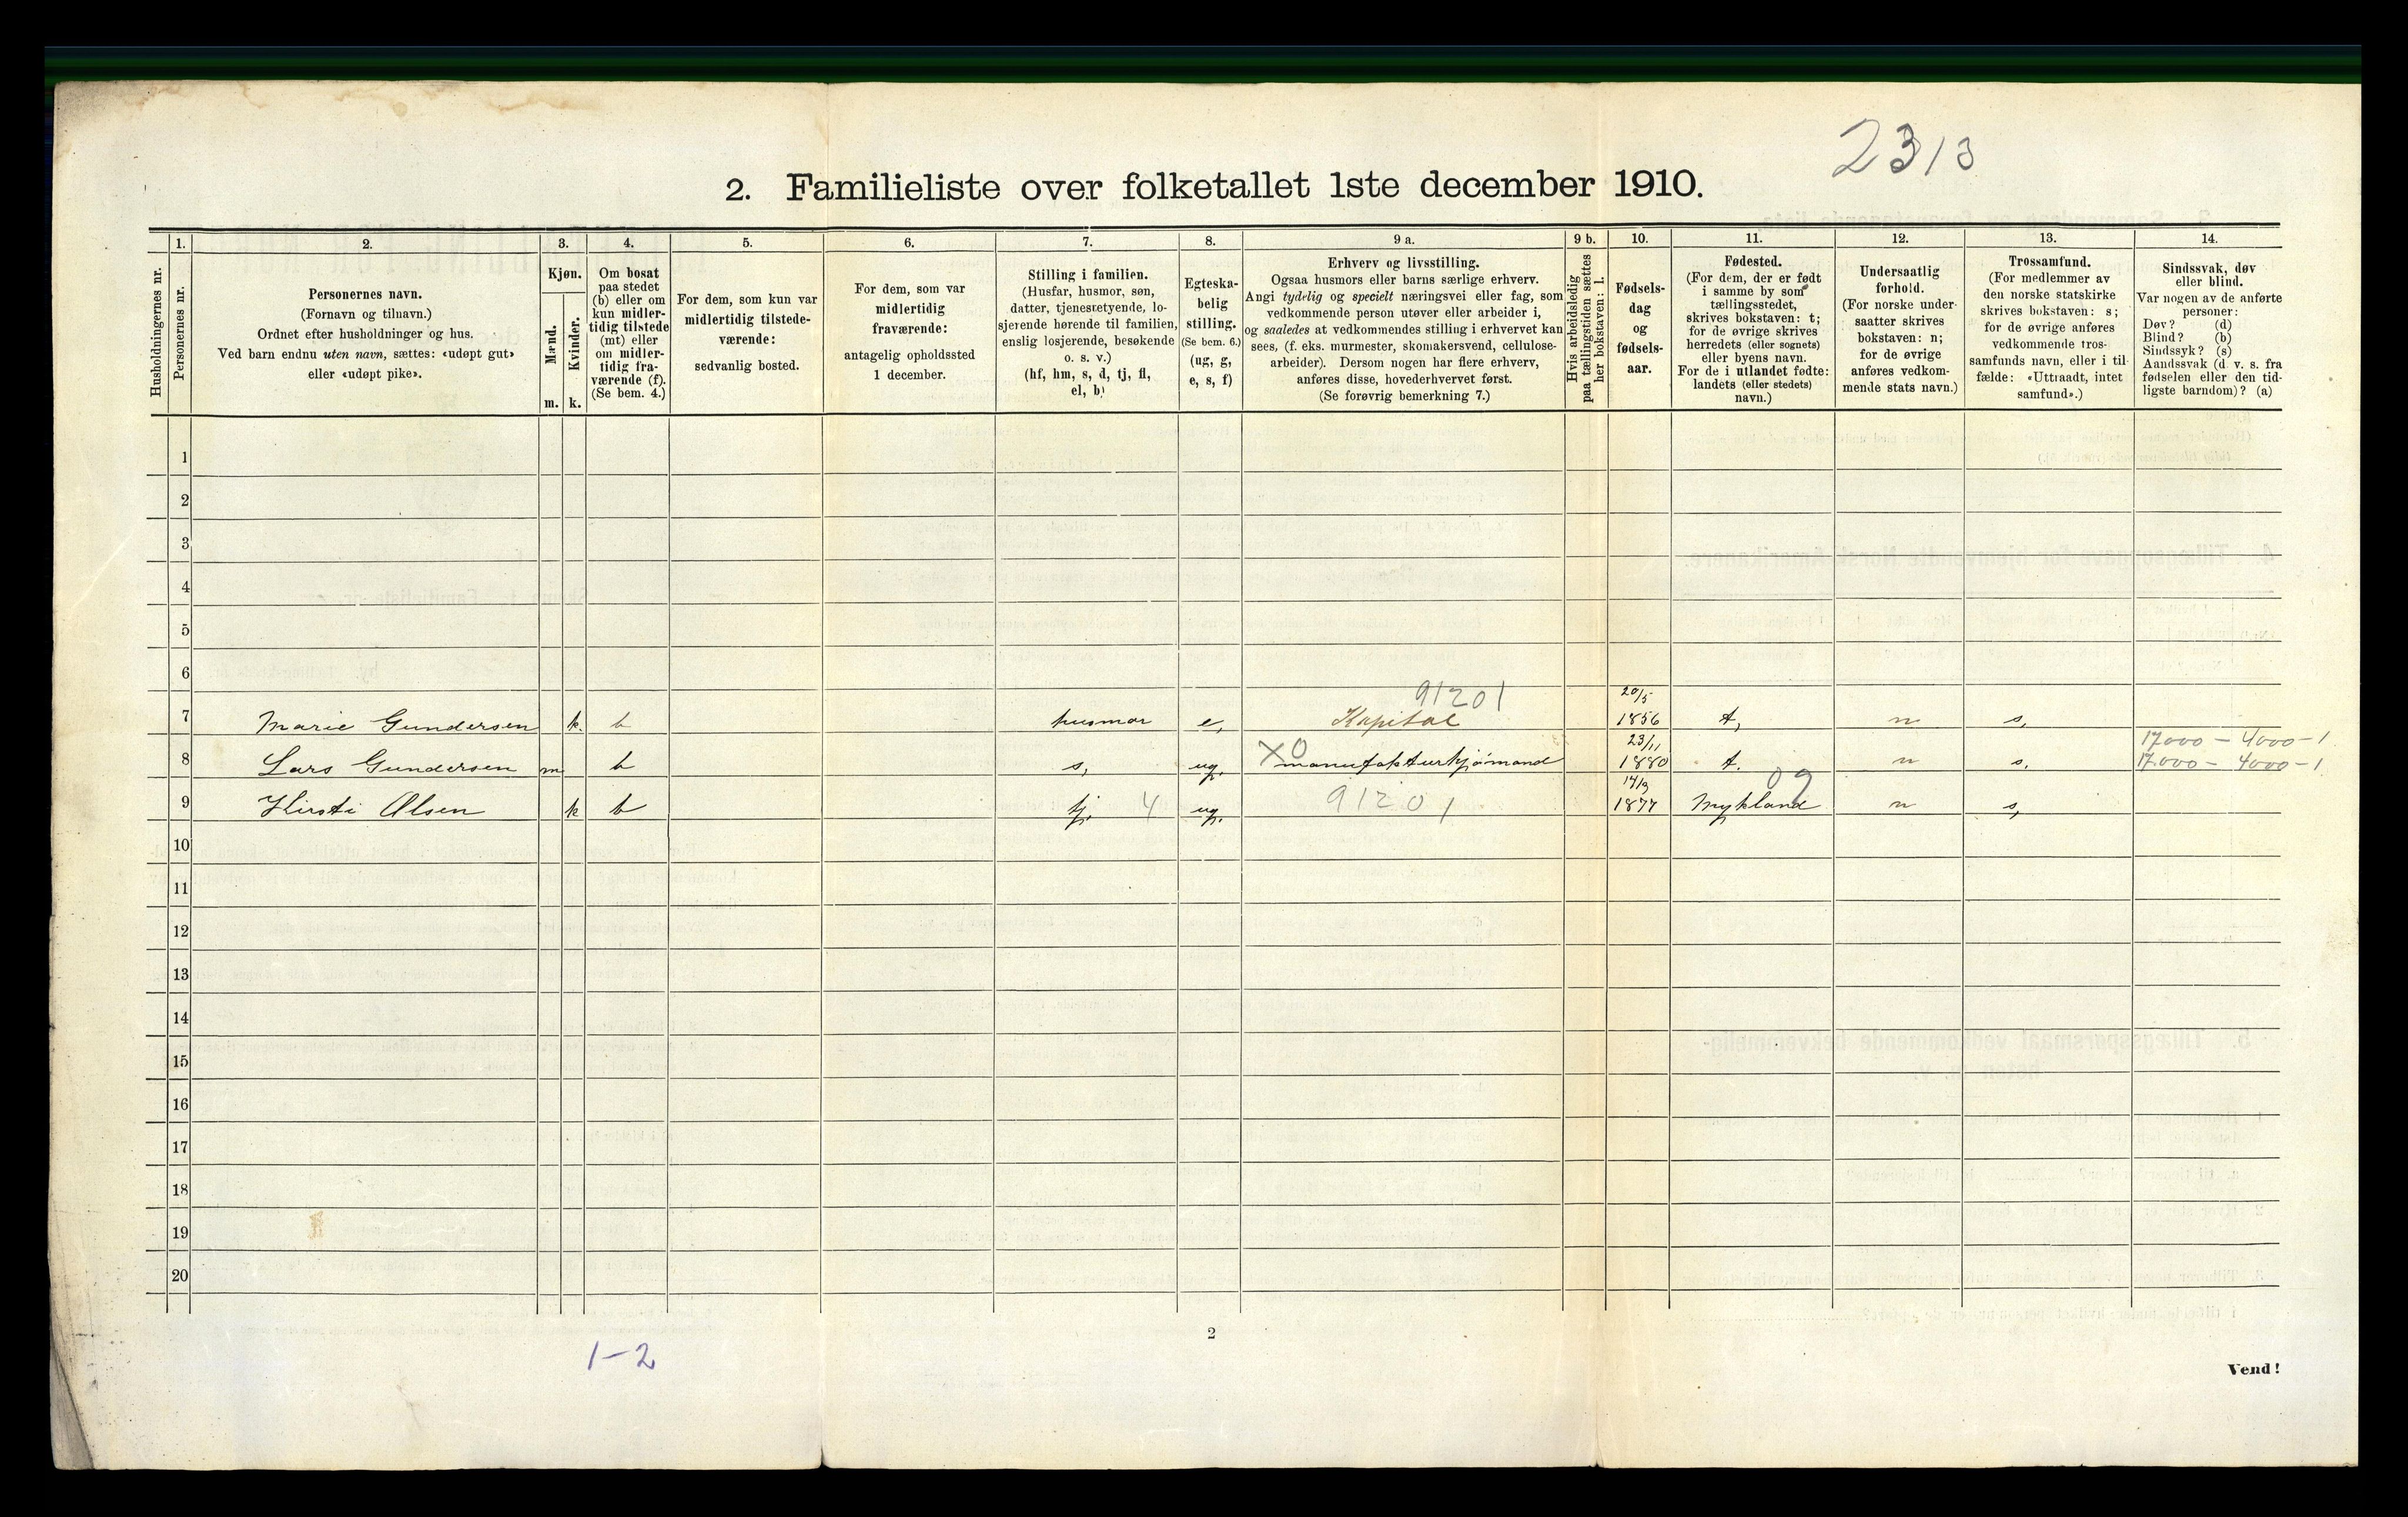 2313
2. Familieliste over folketallet 1ste december 1910.
1. 2. 3. 4. 5. 6. 7. 8. 9 a. 9 b. 10. 11. 12. 13. 14.
Husholdningernes nr.
Personernes nr.
Personernes navn.
(Fornavn og tilnavn.)
Ordnet efter husholdninger og hus.
Ved barn endnu uten navn, sættes: «udøpt gut»
eller «udøpt pike».
Kjøn.
Mænd.
Kvinder.
m. k.
Om bosat
paa stedet
(b) eller om
kun midler-
tidig tilstede
(mt) eller
om midler-
tidig fra-
værende (f).
(Se bem. 4.)
For dem, som kun var
midlertidig tilstede-
værende:
sedvanlig bosted.
For dem, som var
midlertidig
fraværende:
antagelig opholdssted
1 december.
Stilling i familien.
(Husfar, husmor, søn,
datter, tjenestetyende, lo-
sjerende hørende til familien,
enslig losjerende, besøkende
o. s. v.)
(hf, hm, s, d, tj, fl,
el, b)
Egteska-
belig
stilling.
(Se bem. 6.)
(ug, g,
e, s, f)
Erhverv og livsstilling.
Ogsaa husmors eller barns særlige erhverv.
Angi tydelig og specielt næringsvei eller fag, som
vedkommende person utøver eller arbeider i,
og saaledes at vedkommendes stilling i erhvervet kan
sees, (f. eks. murmester, skomakersvend, cellulose-
arbeider). Dersom nogen har flere erhverv,
anføres disse, hovederhvervet først.
(Se forøvrig bemerkning 7.)
Hvis arbeidsledig
paa tællingstiden sættes
her bokstaven: l.
Fødsels-
dag
og
fødsels-
aar.
Fødested.
(For dem, der er født
i samme by som
tællingsstedet,
skrives bokstaven: t;
for de øvrige skrives
herredets (eller sognets)
eller byens navn.
For de i utlandet fødte:
landets (eller stedets)
navn.)
Undersaatlig
forhold.
(For norske under-
saatter skrives
bokstaven: n;
for de øvrige
anføres vedkom-
mende stats navn.)
Trossamfund.
(For medlemmer av
den norske statskirke
skrives bokstaven: s;
for de øvrige anføres
vedkommende tros-
samfunds navn, eller i til-
fælde: «Uttraadt, intet
samfund».)
Sindssvak, døv
eller blind.
Var nogen av de anførte
personer:
Døv? (d)
Blind? (b)
Sindssyk? (s)
Aandssvak (d. v. s. fra
fødselen eller den tid-
ligste barndom)? (a)
1
2
3
4
5
6
91201 20/5
7 Marie Gundersen k. b husmor e, Kapital 1856 t, n s,
23/11 17000 - 4000 - 1
8 Lars Gundersen m b s, ug. XO manufakturhjömand 1880 t. n s, 17.000 - 4000 - 1
14/9 09
9 Kirsti Olsen k b tj. 4 ug. 91201 1877 Mykland n s,
10
11
12
13
14
15
16
17
18
19
20
2
1-2
Vend!